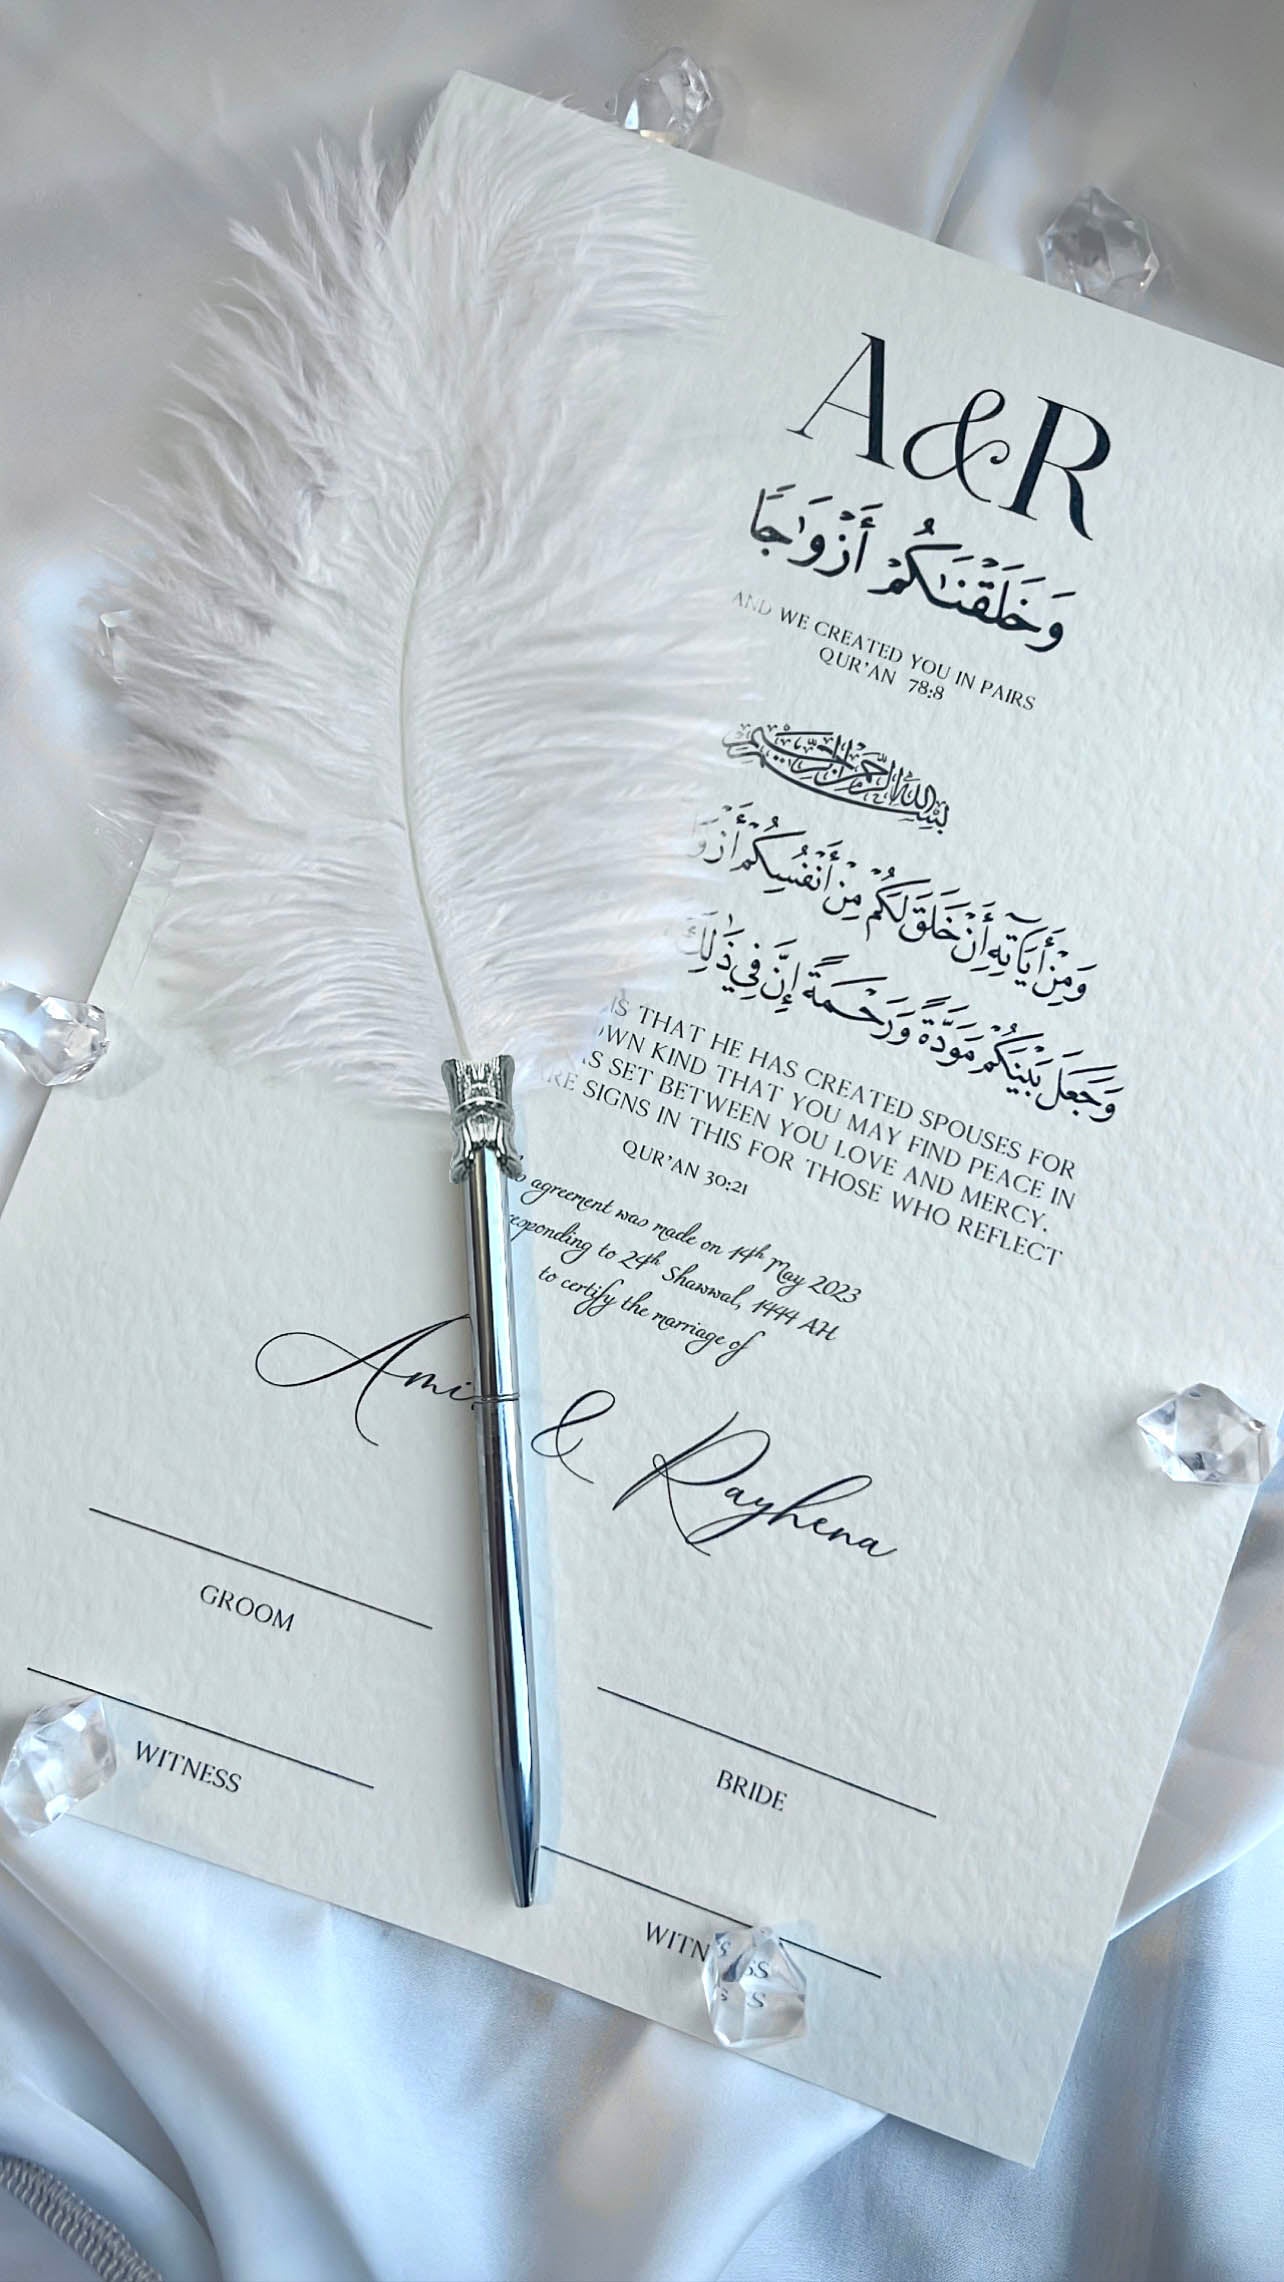 A&R
وَخَلَقْنَاكُمْ أَزْوَاجًا
AND WE CREATED YOU IN PAIRS
QUR'AN 78:8
بِسْمِ اللَّهِ الرَّحْمَنِ الرَّحِيمِ
وَمِنْ أَيَاتِهِ أَنْ خَلَقَ لَكُم مِنْ أَنْفُسِكُمْ
وَجَعَلَ بَيْنَكُمْ مَوَدَّةً وَرَحْمَةً إِنَّ فِي ذَلِكَ
THAT HE HAS CREATED SPOUSES FOR
KIND THAT YOU MAY FIND PEACE IN
SET BETWEEN YOU LOVE AND MERCY.
SIGNS IN THIS FOR THOSE WHO REFLECT
QUR'AN 30:21
agreement was made on 14th May 2023
to 24th Shawwal, 1444 AH
to certify the marriage of
& Rayhena
GROOM
BRIDE
WITNESS
WITNESS